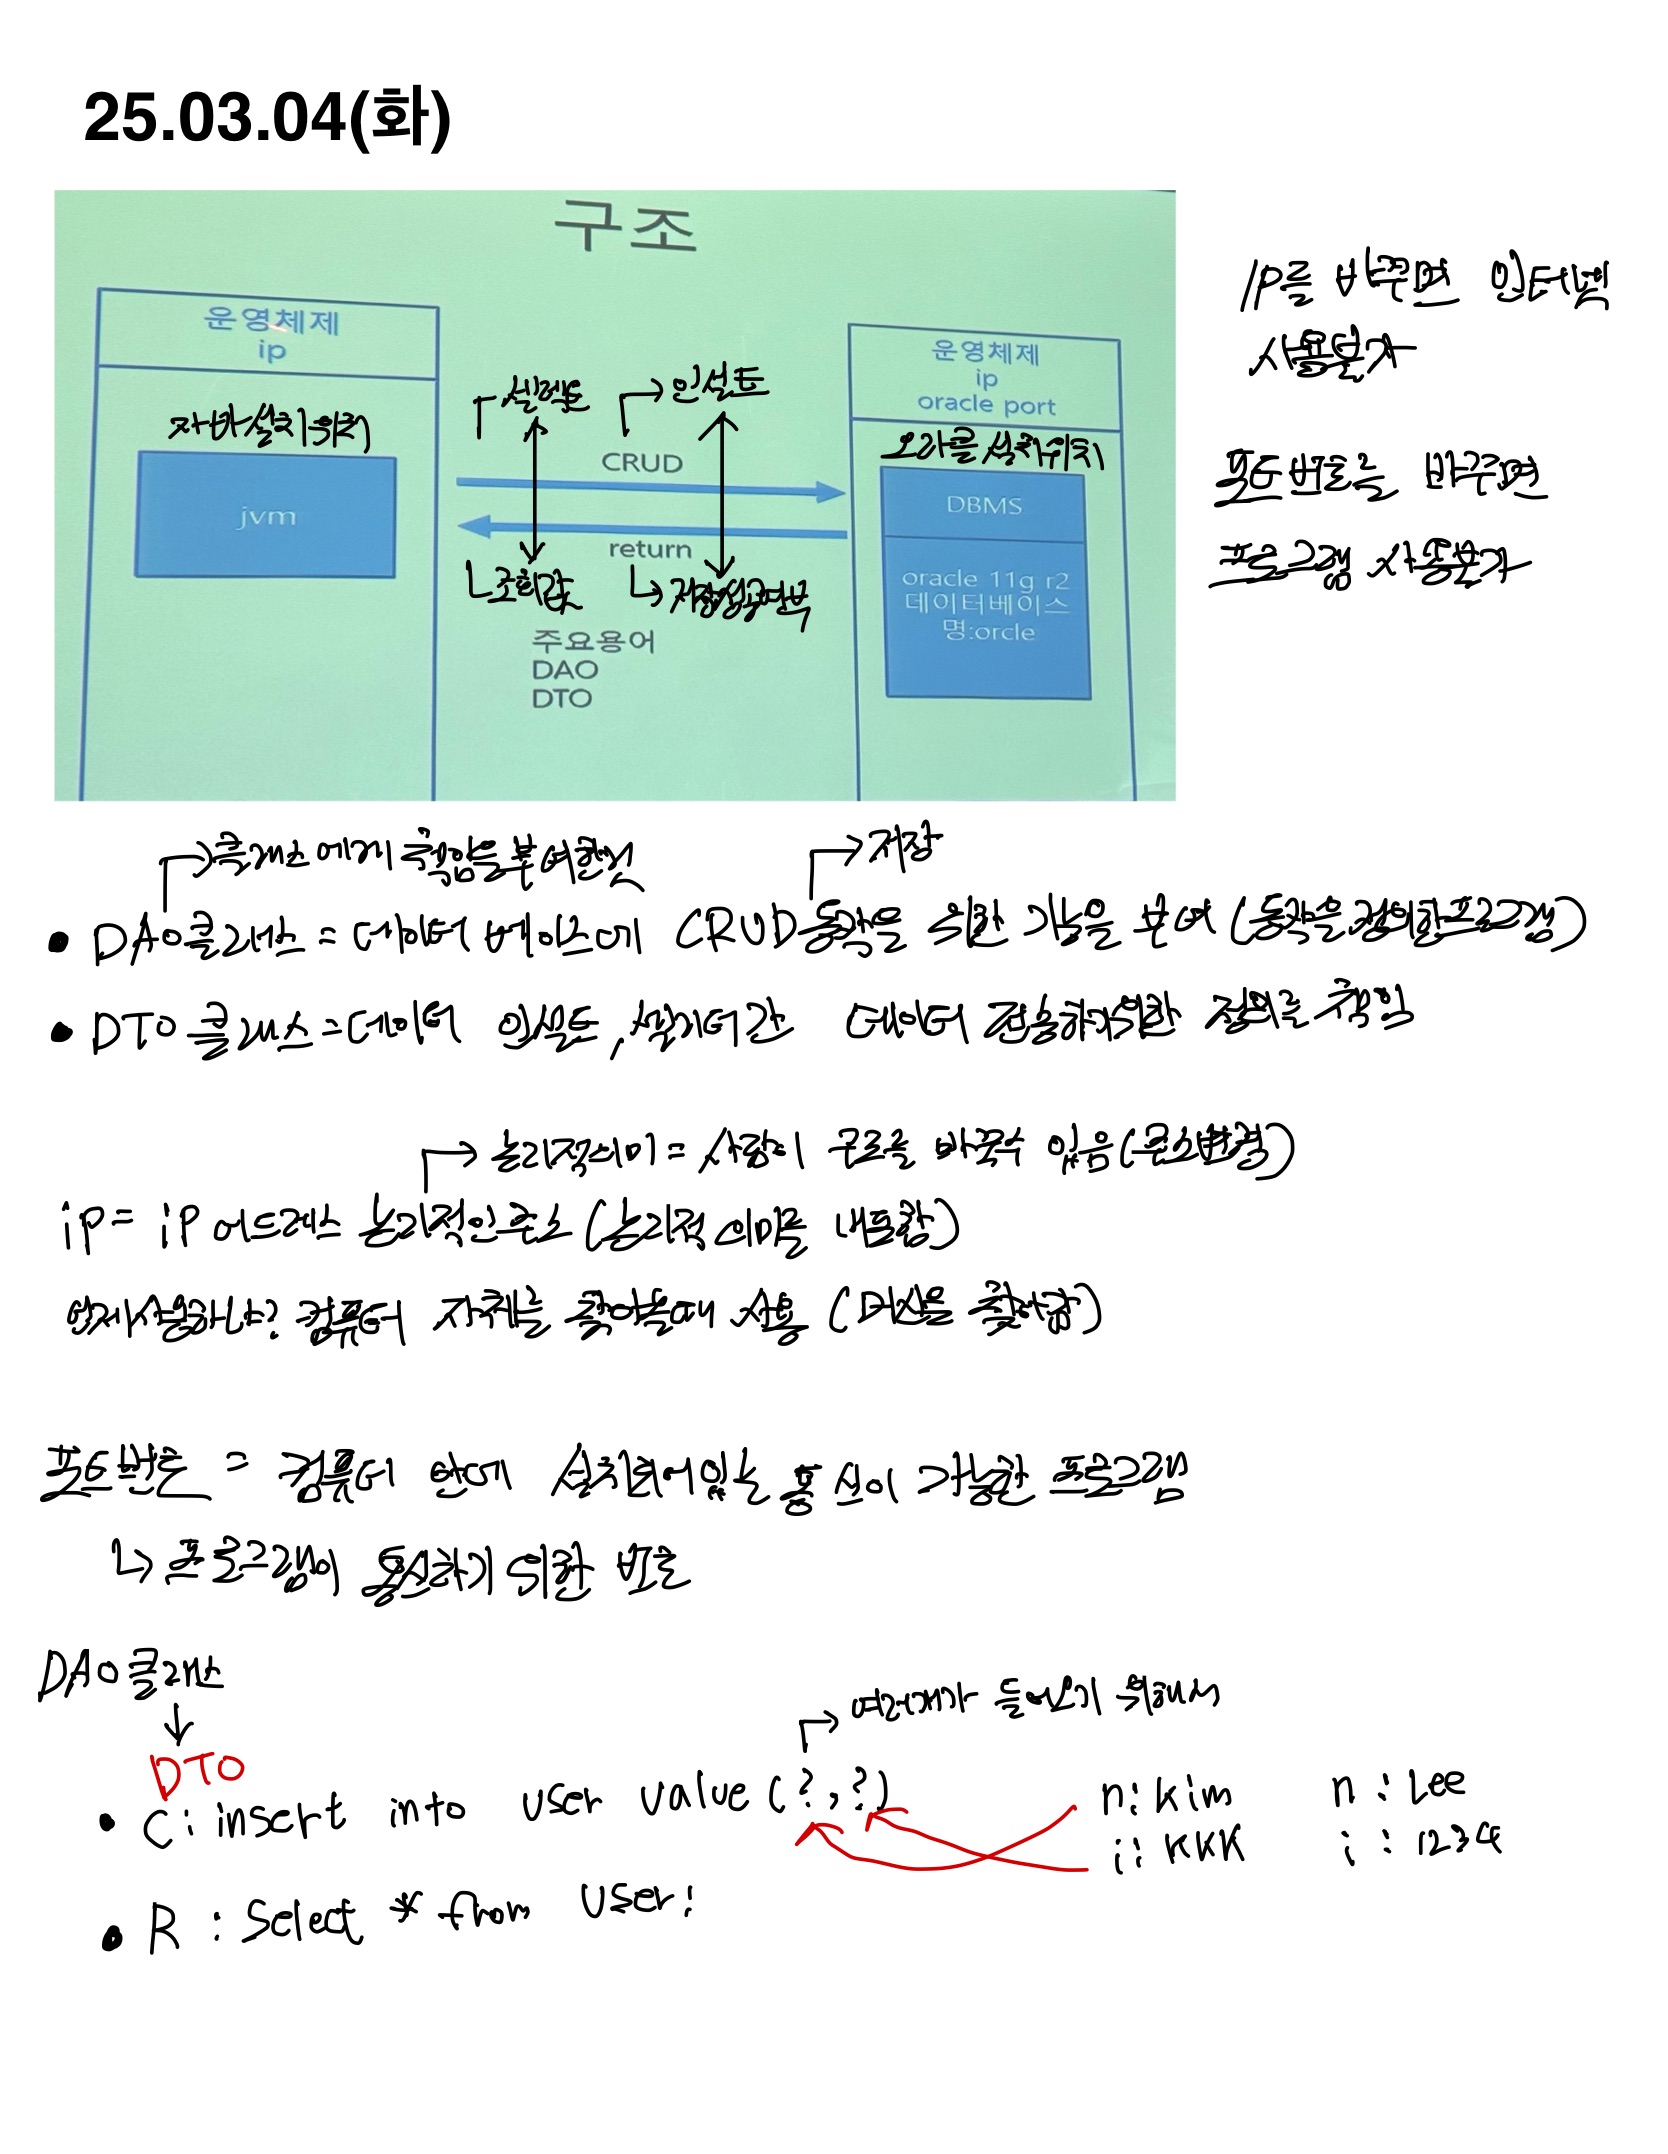 25.03.04(화)
구조
운영체제
ip
자바설치위치
jvm
셀렉트
인설트
CRUD
return
조회값
저장성공여부
주요용어
DAO
DTO
운영체제
ip
oracle port
오라클 설치위치
DBMS
oracle 11g r2
데이터베이스
명:orcle
IP를 바꾸면 인터넷
사용불가
포트번호를 바꾸면
프로그램 사용불가
클래스에게 책임을 부여한것
저장
DAO클래스 = 데이터 베이스에 CRUD동작을 위한 기능을 부여 (동작을 정의한프로그램)
DTO 클래스 = 데이터 인설트, 셀렉터간 데이터 전송하기위한 정의를 책임
논리적의미 = 사람이 구조를 바꿀수 있음 (주소변경)
ip = ip 어드레스 논리적인주소 (논리적 의미를 내포함)
언제사용하냐? 컴퓨터 자체를 찾아올때 사용 (머신을 찾아감)
포트번호 = 컴퓨터 안에 설치되어있는 통신이 가능한 프로그램
프로그램이 통신하기 위한 번호
DAO클래스
DTO
여러개가 들어오기 위해서
C: insert into user value (?,?) n: kim n: Lee
i: KKK i: 1234
R : Select * from user;